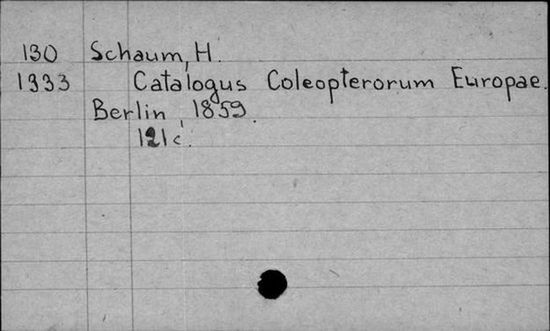 130 Schaum, H.
1933 Catalogus Coleopterorum Europae.
Berlin, 1859.
121 c.